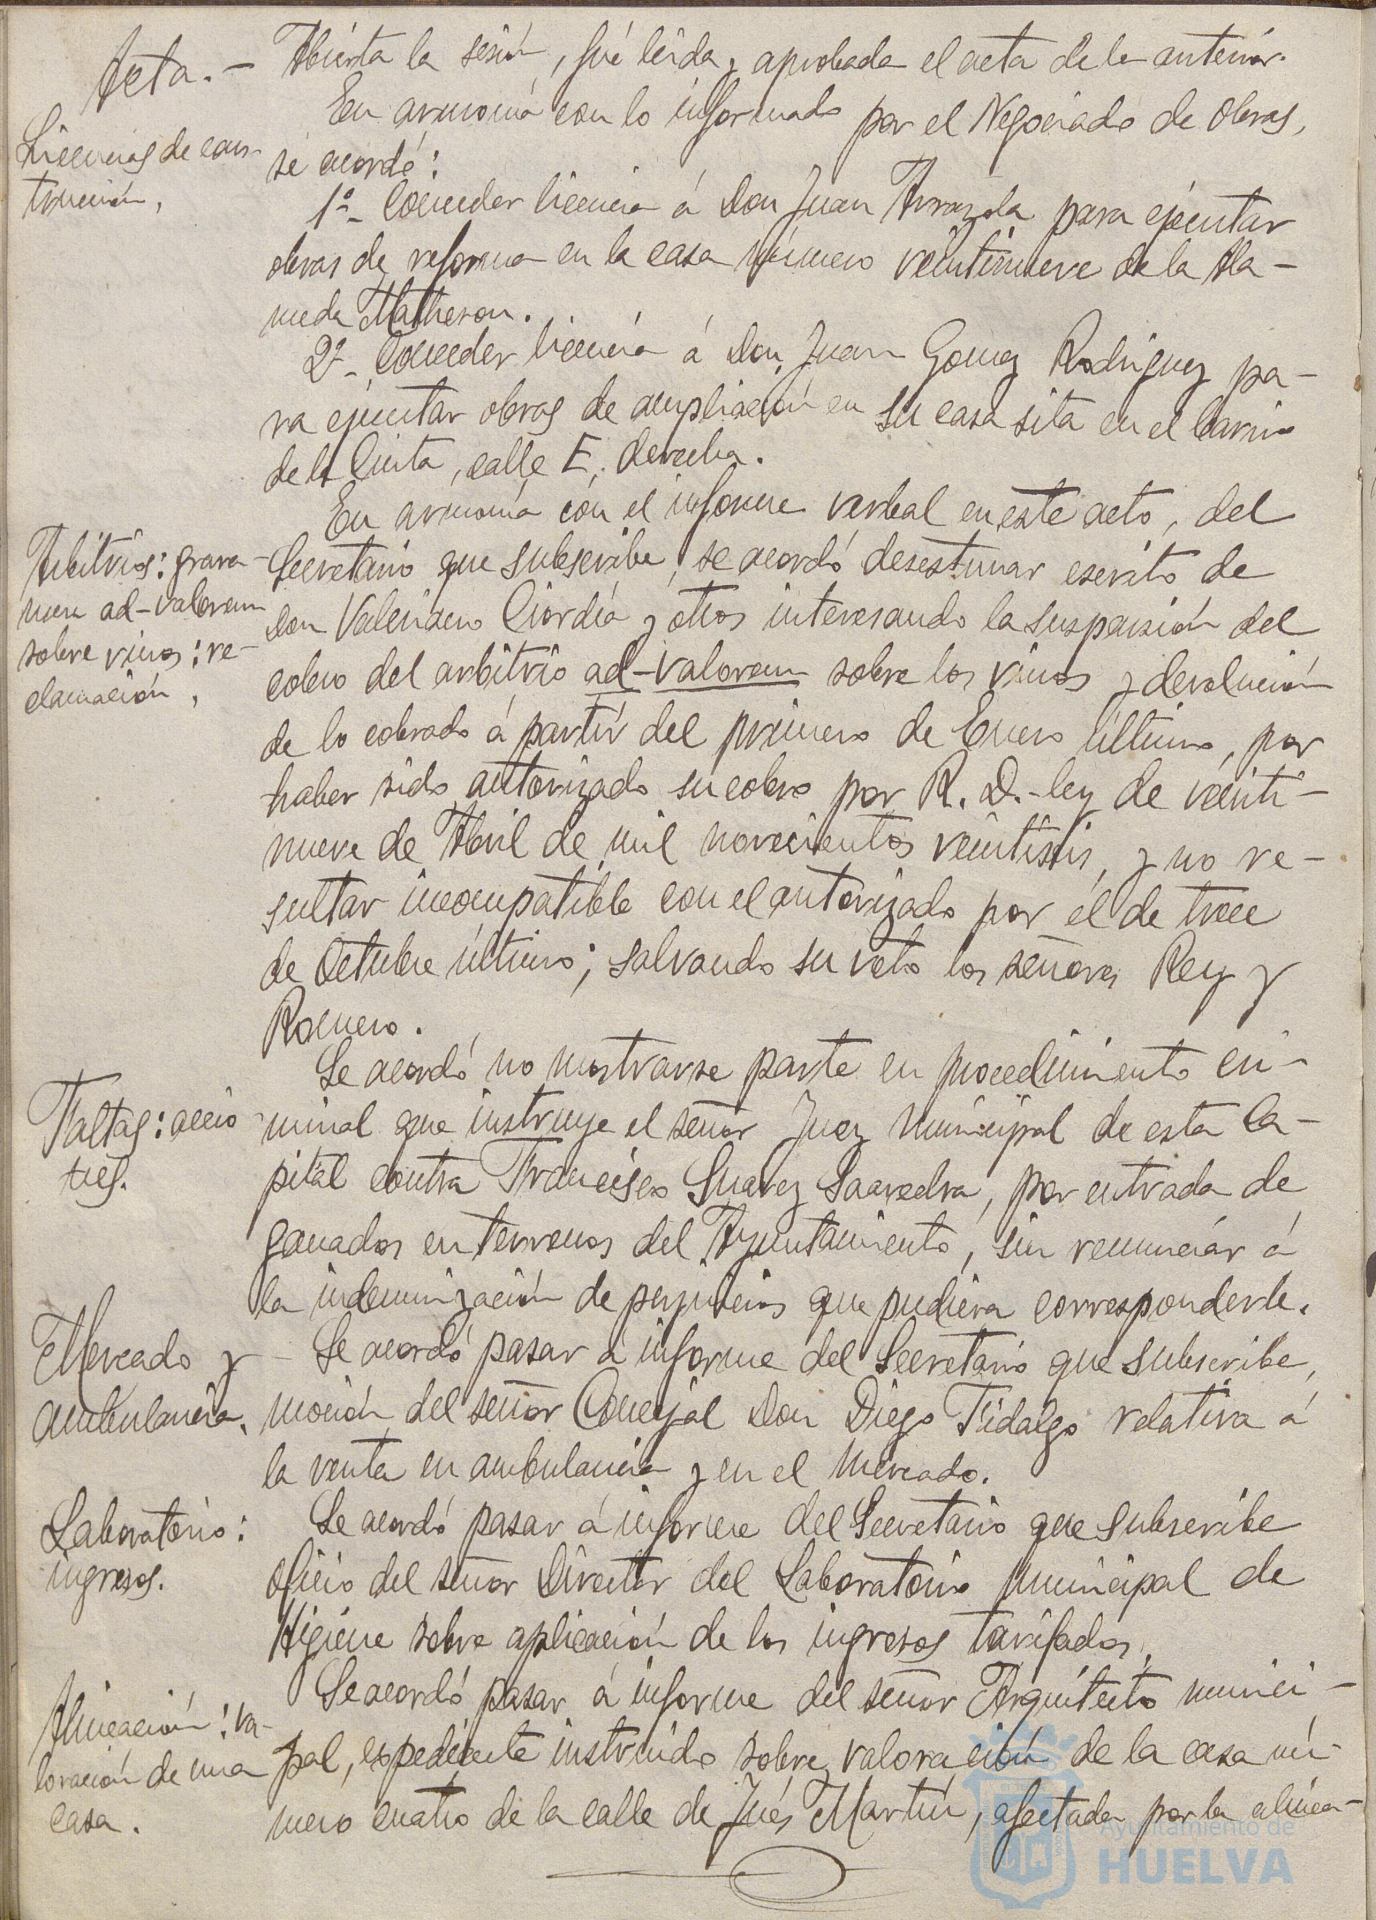 Acta.-
Abierta la sesión, fué leida y aprobada el acta de la anterior.
Licencias de cons-
trucción,
En armonía con lo informado por el Negociado de Obras,
se acordó:
1º- Conceder licencia á Don Juan Arrazola para ejecutar
obras de reforma en la casa número veintinueve de la Ala-
meda Matheson.
2º- Conceder licencia á Don Juan Gomez Rodriguez pa-
ra ejecutar obras de ampliación en su casa sita en el barrio
de la Cinta, calle E, derecha.
Arbitrios: grava-
men ad-valorem
sobre vinos: re-
clamación,
En armonía con el informe verbal en este acto, del
Secretario que subscribe, se acordó desestimar escrito de
Don Valeriano Ciordia y otros interesando la suspensión del
cobro del arbitrio ad-valorem sobre los vinos y devolución
de lo cobrado á partir del primero de Enero último, por
haber sido autorizado su cobro por R. D.-ley de veinti-
nueve de Abril de mil novecientos veintiseis, y no re-
sultar incompatible con el autorizado por el de trece
de Octubre último; salvando su voto los señores Rey y
Romero.
Faltas: accio
nes.
Se acordó no mostrarse parte en procedimiento cri-
minal que instruye el señor Juez Municipal de esta Ca-
pital contra Francisco Suarez Saavedra, por entrada de
ganados en terrenos del Ayuntamiento, sin renunciar á
la indemnización de perjuicios que pudiera corresponderle.
Mercado y
ambulancia.
Se acordó pasar á informe del Secretario que subscribe,
moción del señor Concejal Don Diego Fidalgo relativa á
la venta en ambulancia y en el Mercado.
Laboratorio:
ingresos.
Se acordó pasar á informe del Secretario que subscribe
oficio del señor Director del Laboratorio Municipal de
Higiene sobre aplicación de los ingresos tarifados,
Alineación: va-
loración de una
casa.
Se acordó pasar á informe del señor Arquitecto munici-
pal, expediente instruido sobre valoración de la casa nú-
mero cuatro de la calle de Inés Martín, afectada por la alinea-
Ayuntamiento de
HUELVA